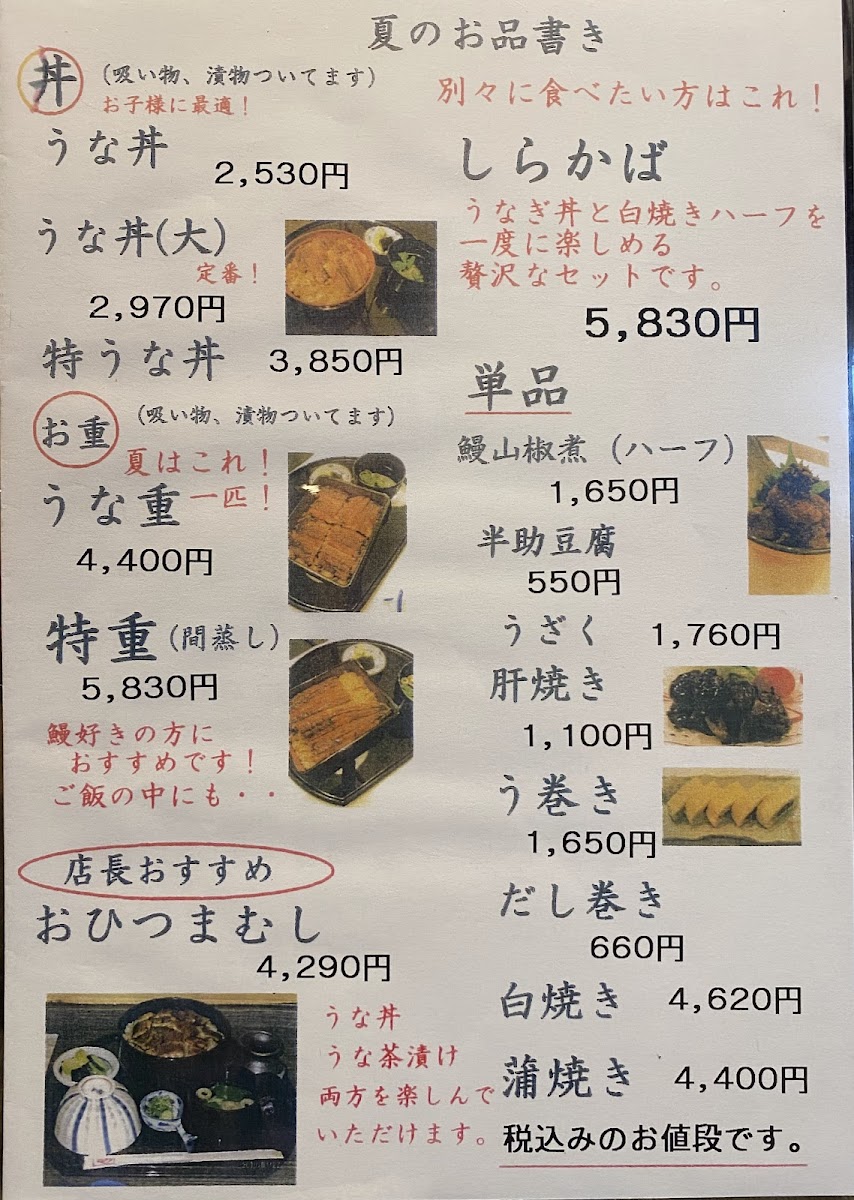 夏のお品書き
丼 (吸い物、漬物ついてます)
お子様に最適!
うな丼
2,530円
うな丼(大)
定番!
2,970円
特うな丼 3,850円
お重 (吸い物、漬物ついてます)
夏はこれ!
うな重 一匹!
4,400円
特重(間蒸し)
5,830円
鰻好きの方に
おすすめです!
ご飯の中にも・・
店長おすすめ
おひつまむし
4,290円
うな丼
うな茶漬け
両方を楽しんで
いただけます。
別々に食べたい方はこれ!
しらかば
うなぎ丼と白焼きハーフを
一度に楽しめる
贅沢なセットです。
5,830円
単品
鰻山椒煮 (ハーフ)
1,650円
半助豆腐
550円
うざく 1,760円
肝焼き
1,100円
う巻き
1,650円
だし巻き
660円
白焼き 4,620円
蒲焼き 4,400円
税込みのお値段です。